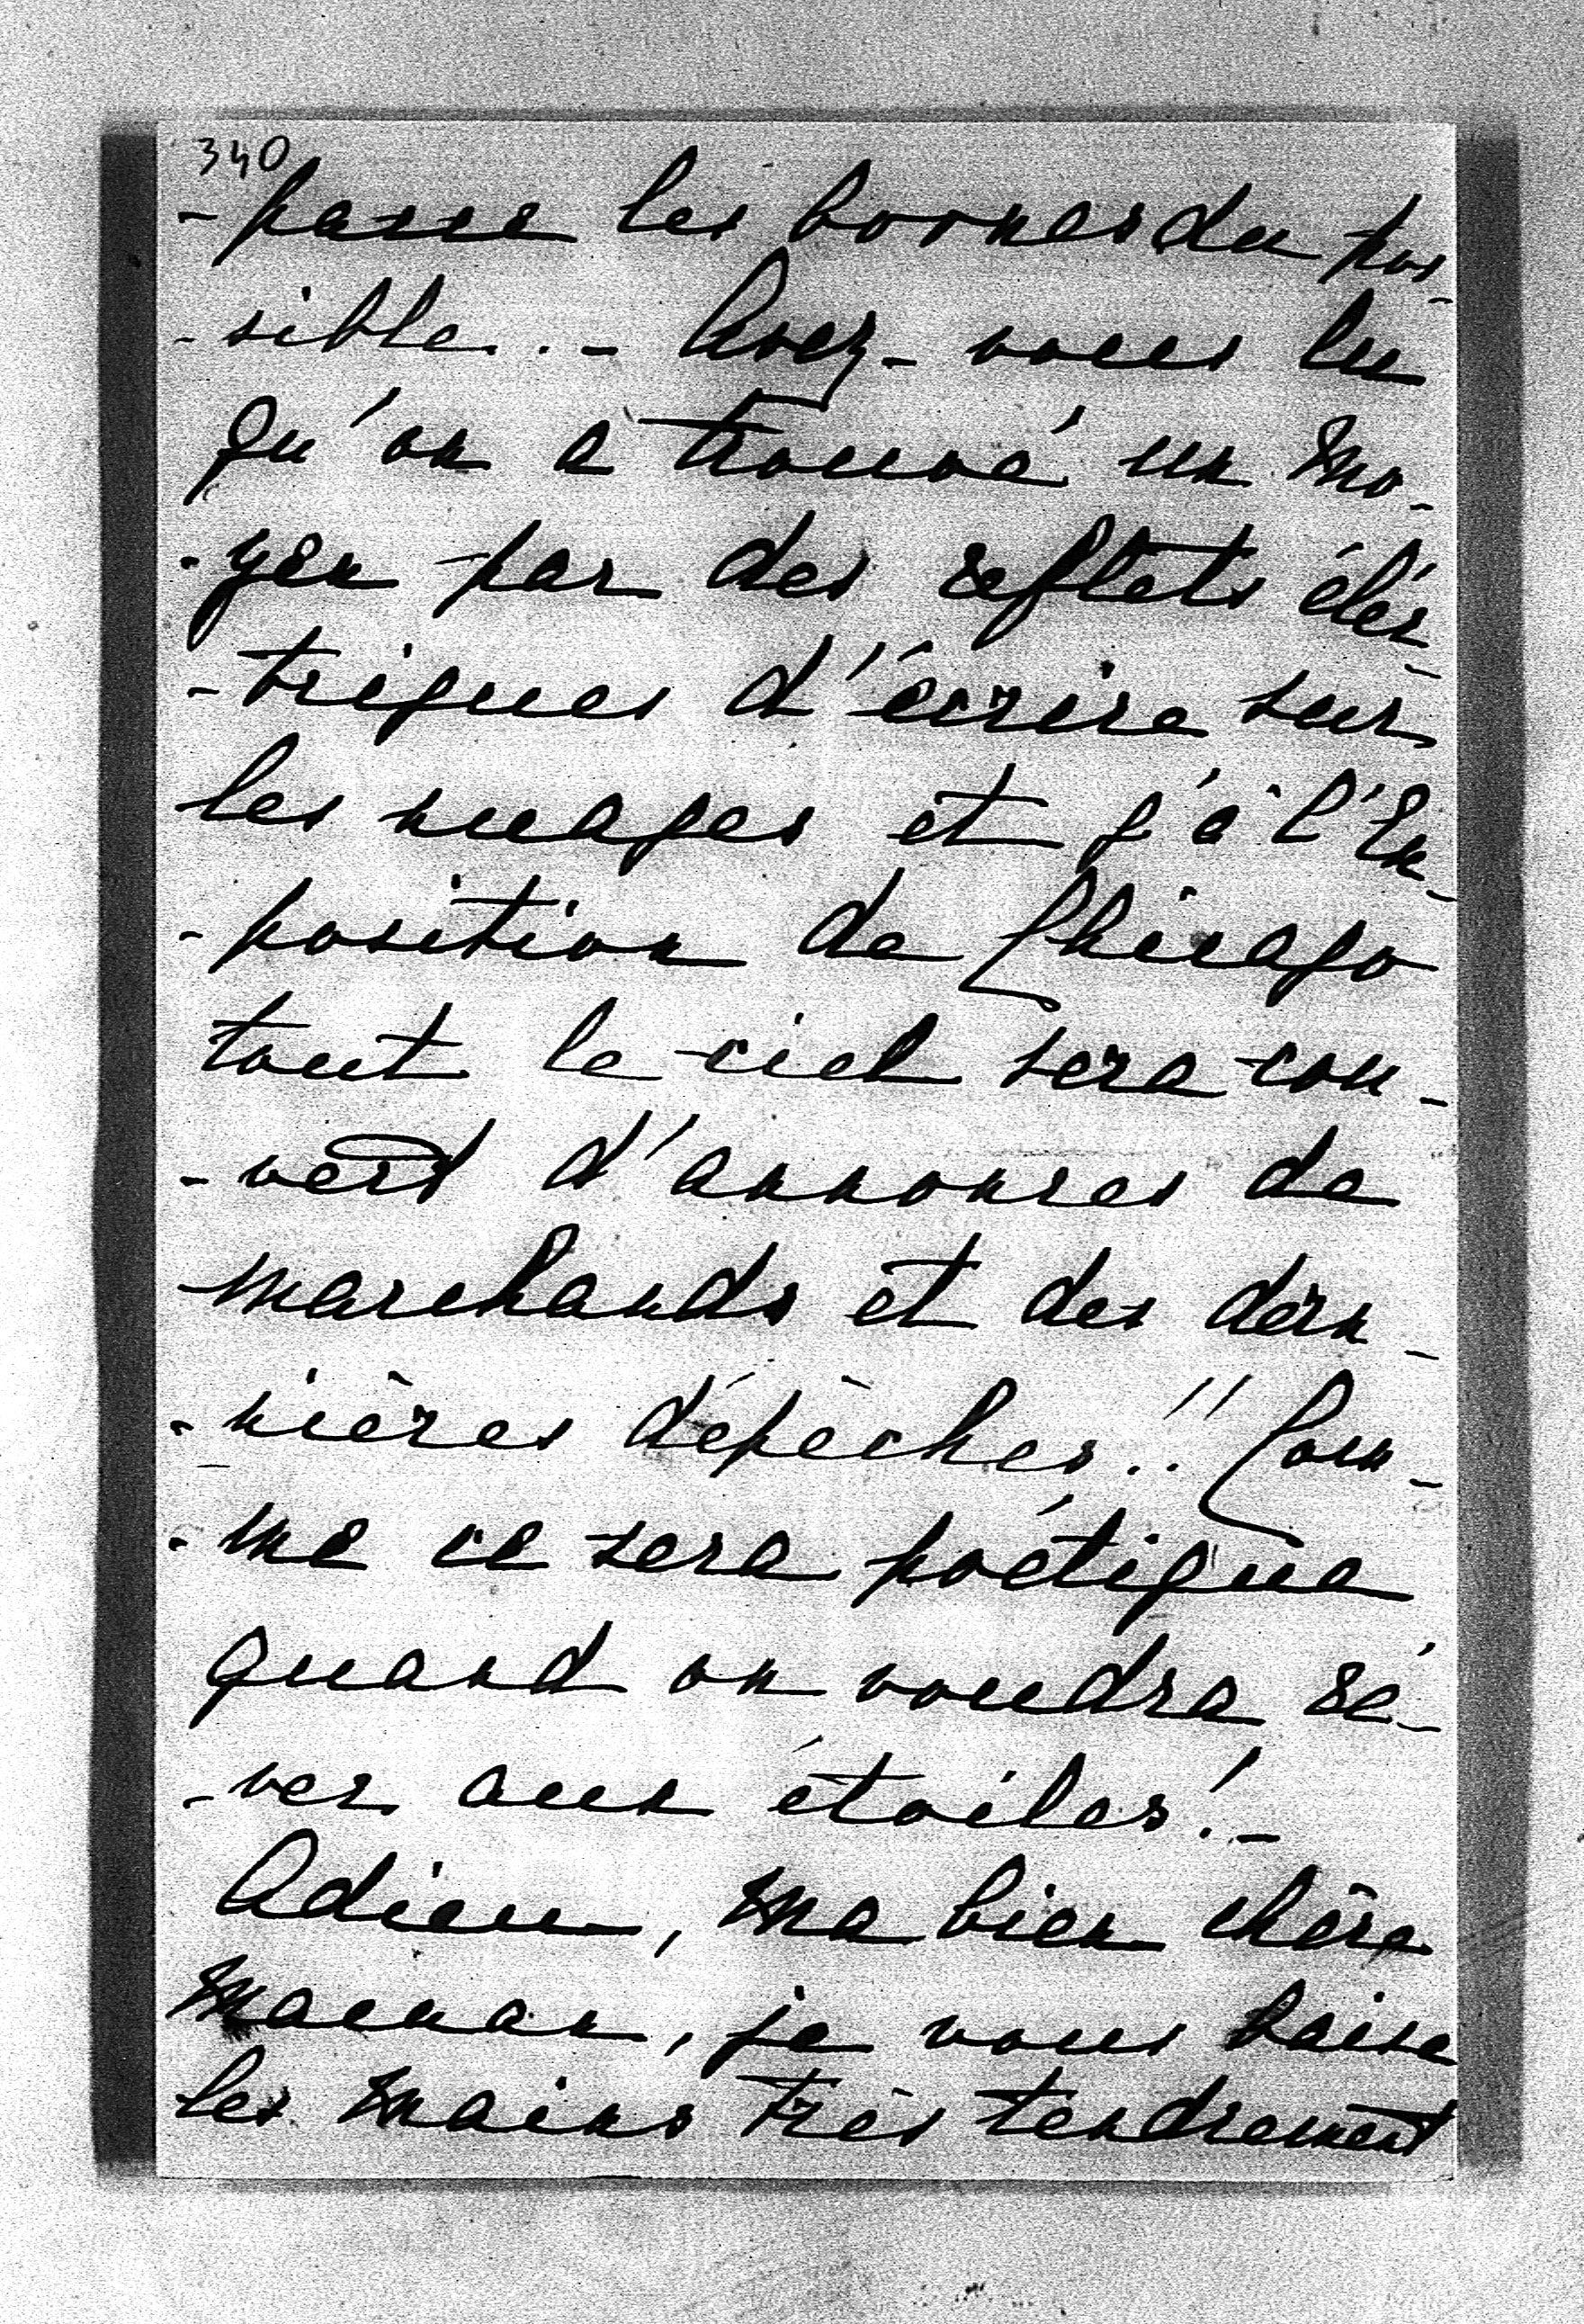 340
-passe les bornes du pos-
-sible. - Avez-vous lu
qu'on a trouvé un mo-
-yen par des reflets éléc-
-triques d'écrire sur
les nuages et q'à l'Ex-
-position de Chicago
tout le ciel sera cou-
-vert d'annonces de
marchands et des dern-
-nières dépêches!! Com-
-me ce sera poétique
quand on voudra rê-
-ver aux étoiles! -
Adieu, ma bien chère
Maman, je vous baise
les mains très tendrement